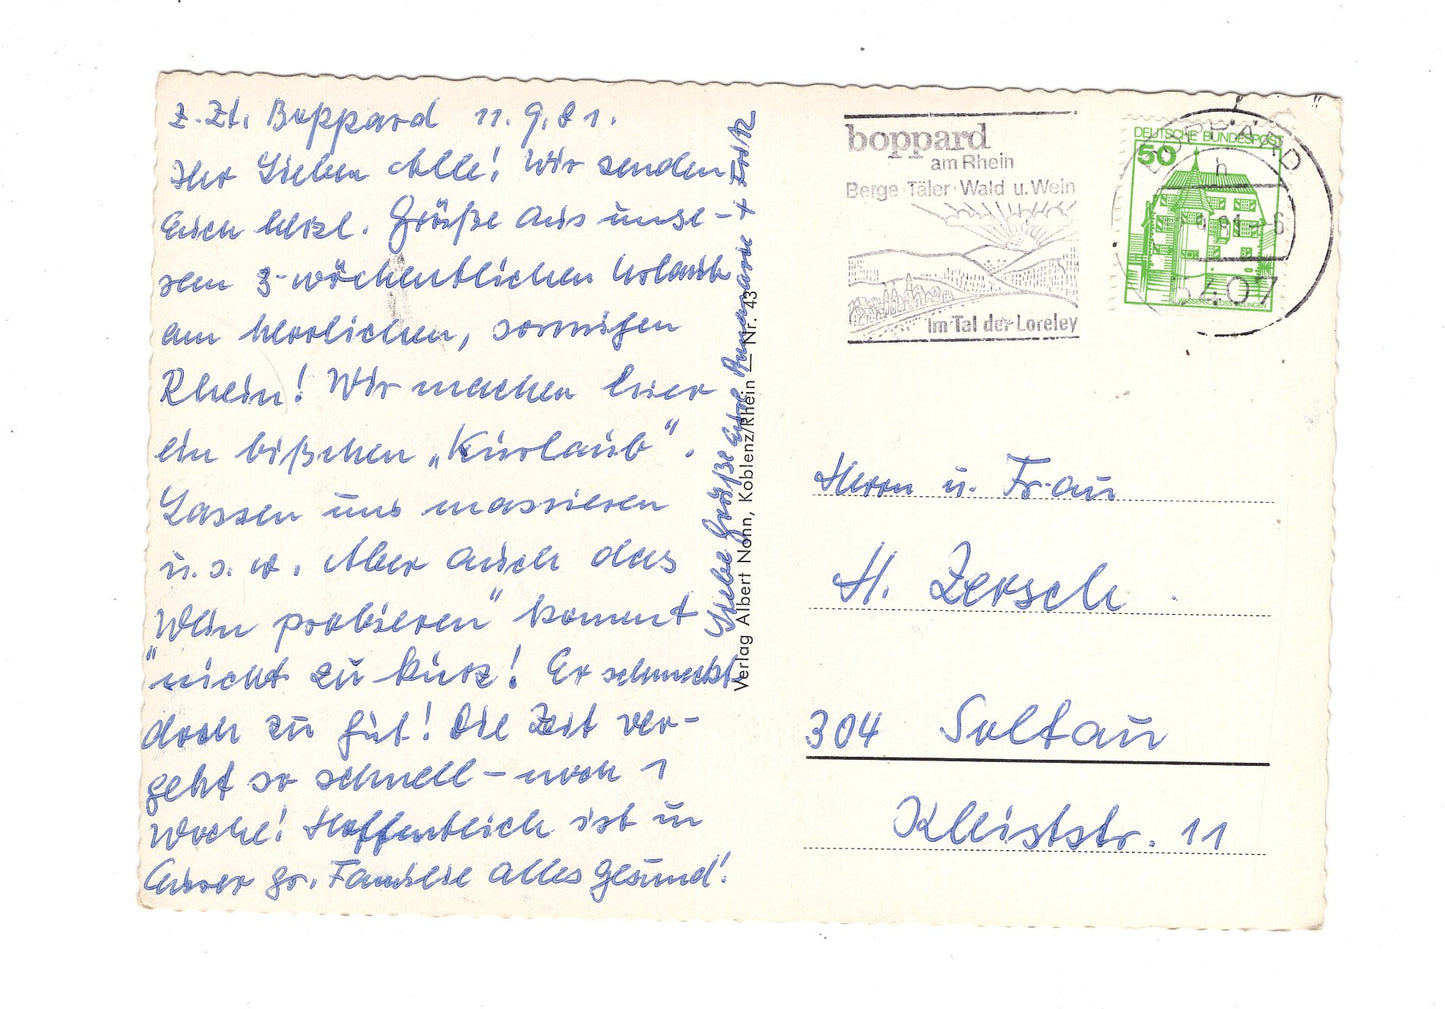 z. Zt. Boppard 11.9.81.
Ihr Lieben Alle! Wir senden
Euch herzl. Grüße aus unse-
rem 3-wöchentlichen Urlaub
am herrlichen, sonnigen
Rhein! Wir machen hier
ein bißchen „Kurlaub".
Lassen uns massieren
u.s.w. Aber auch das
Wein probieren" kommt
"nicht zu kurz! Er schmeckt
doch zu gut! Die Zeit ver-
geht so schnell – noch 1
Woche! Hoffentlich ist in
Eurer gr. Familie alles gesund!
Liebe Grüße Eure Annemarie + Fritz
Verlag Albert Nonn, Koblenz/Rhein — Nr. 43
boppard
am Rhein
Berge · Täler · Wald u. Wein
im Tal der Loreley
DEUTSCHE BUNDESPOST
50
BOPPARD
h
5407
Herrn u. Frau
H. Zersch
304 Soltau
Kleiststr. 11